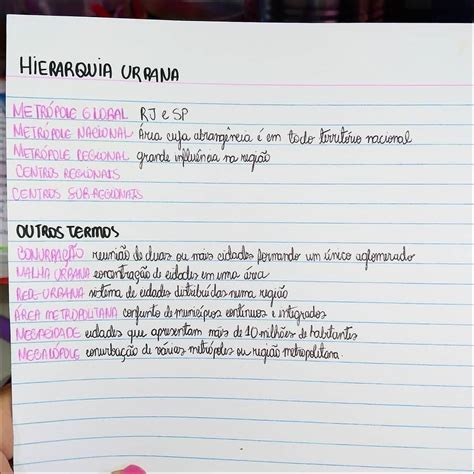 HIERARQUIA URBANA
METRÓPOLE GLOBAL RJ e SP
METRÓPOLE NACIONAL Área cuja abrangência é em todo território nacional
METRÓPOLE REGIONAL grande influência na região
CENTROS REGIONAIS
CENTROS SUB-REGIONAIS
OUTROS TERMOS
CONURBAÇÃO reunião de duas ou mais cidades formando um único aglomerado
MALHA URBANA concentração de cidades em uma área
REDE URBANA sistema de cidades distribuídas numa região
ÁREA METROPOLITANA conjunto de municípios contínuos e integrados
MEGACIDADE cidades que apresentam mais de 10 milhões de habitantes
MEGALÓPOLE conurbação de várias metrópoles ou região metropolitana.